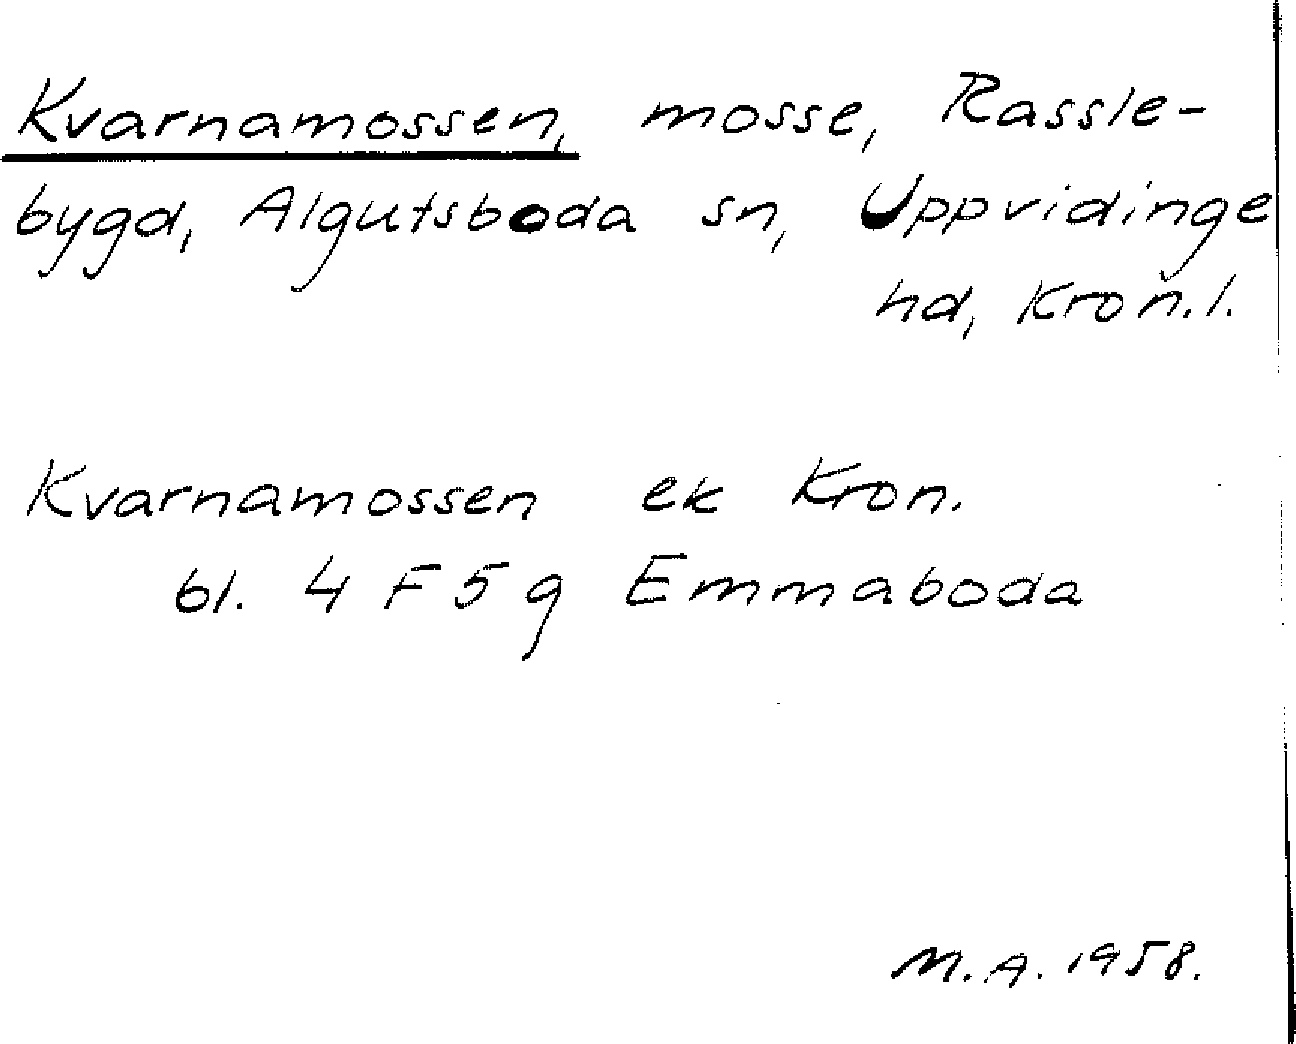 Kvarnamossen, mosse, Rassle-
bygd, Algutsboda sn, Uppvidinge
hd, Kron.l.
Kvarnamossen ek Kron.
bl. 4 F 5 g Emmaboda
M.A. 1958.